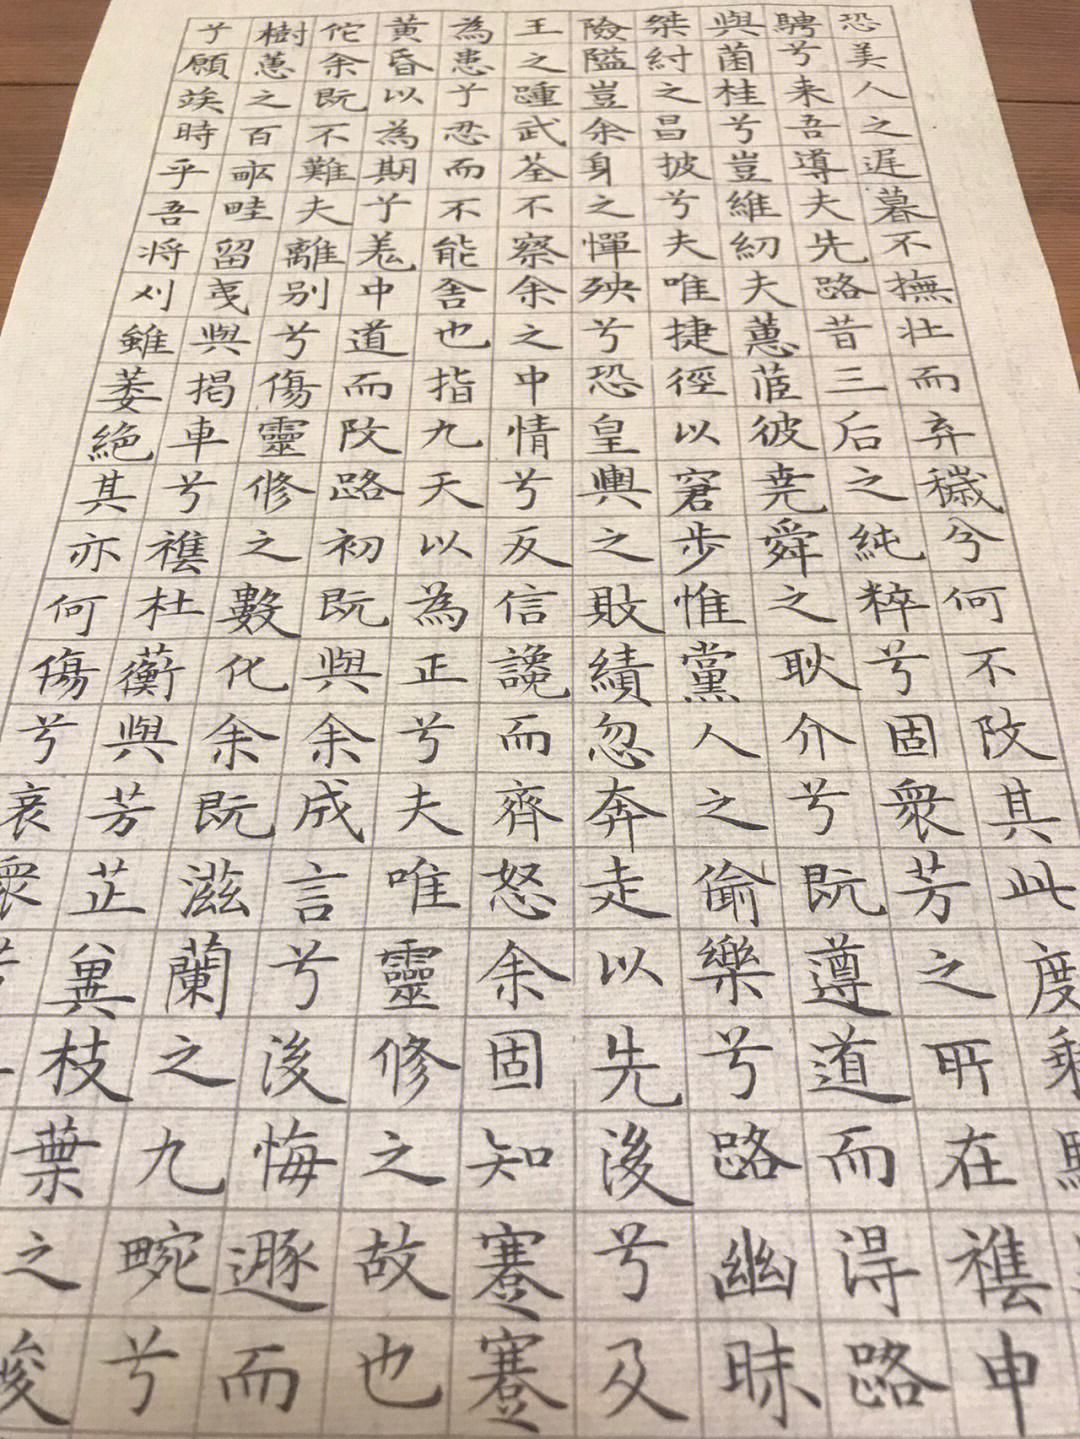 恐美人之遅暮不撫壮而弃穢兮何不攺其此度乘
騁兮来吾導夫先路昔三后之純粹兮固衆芳之所在雜申
與菌桂兮豈維紉夫蕙茝彼尭舜之耿介兮既遵道而得路
桀紂之昌披兮夫唯捷徑以窘步惟黨人之偷樂兮路幽昧
險隘豈余身之憚殃兮恐皇輿之敗績忽奔走以先後兮及
王之踵武荃不察余之中情兮反信讒而齊怒余固知謇謇
為患兮忍而不能舎也指九天以為正兮夫唯靈修之故也
黄昏以為期兮羌中道而攺路初既與余成言兮後悔遯而
佗余既不難夫離别兮傷靈修之數化余既滋蘭之九畹兮
樹蕙之百畝畦留夷與揭車兮雜杜蘅與芳芷冀枝葉之峻
兮願竢時乎吾将刈雖萎絶其亦何傷兮哀衆